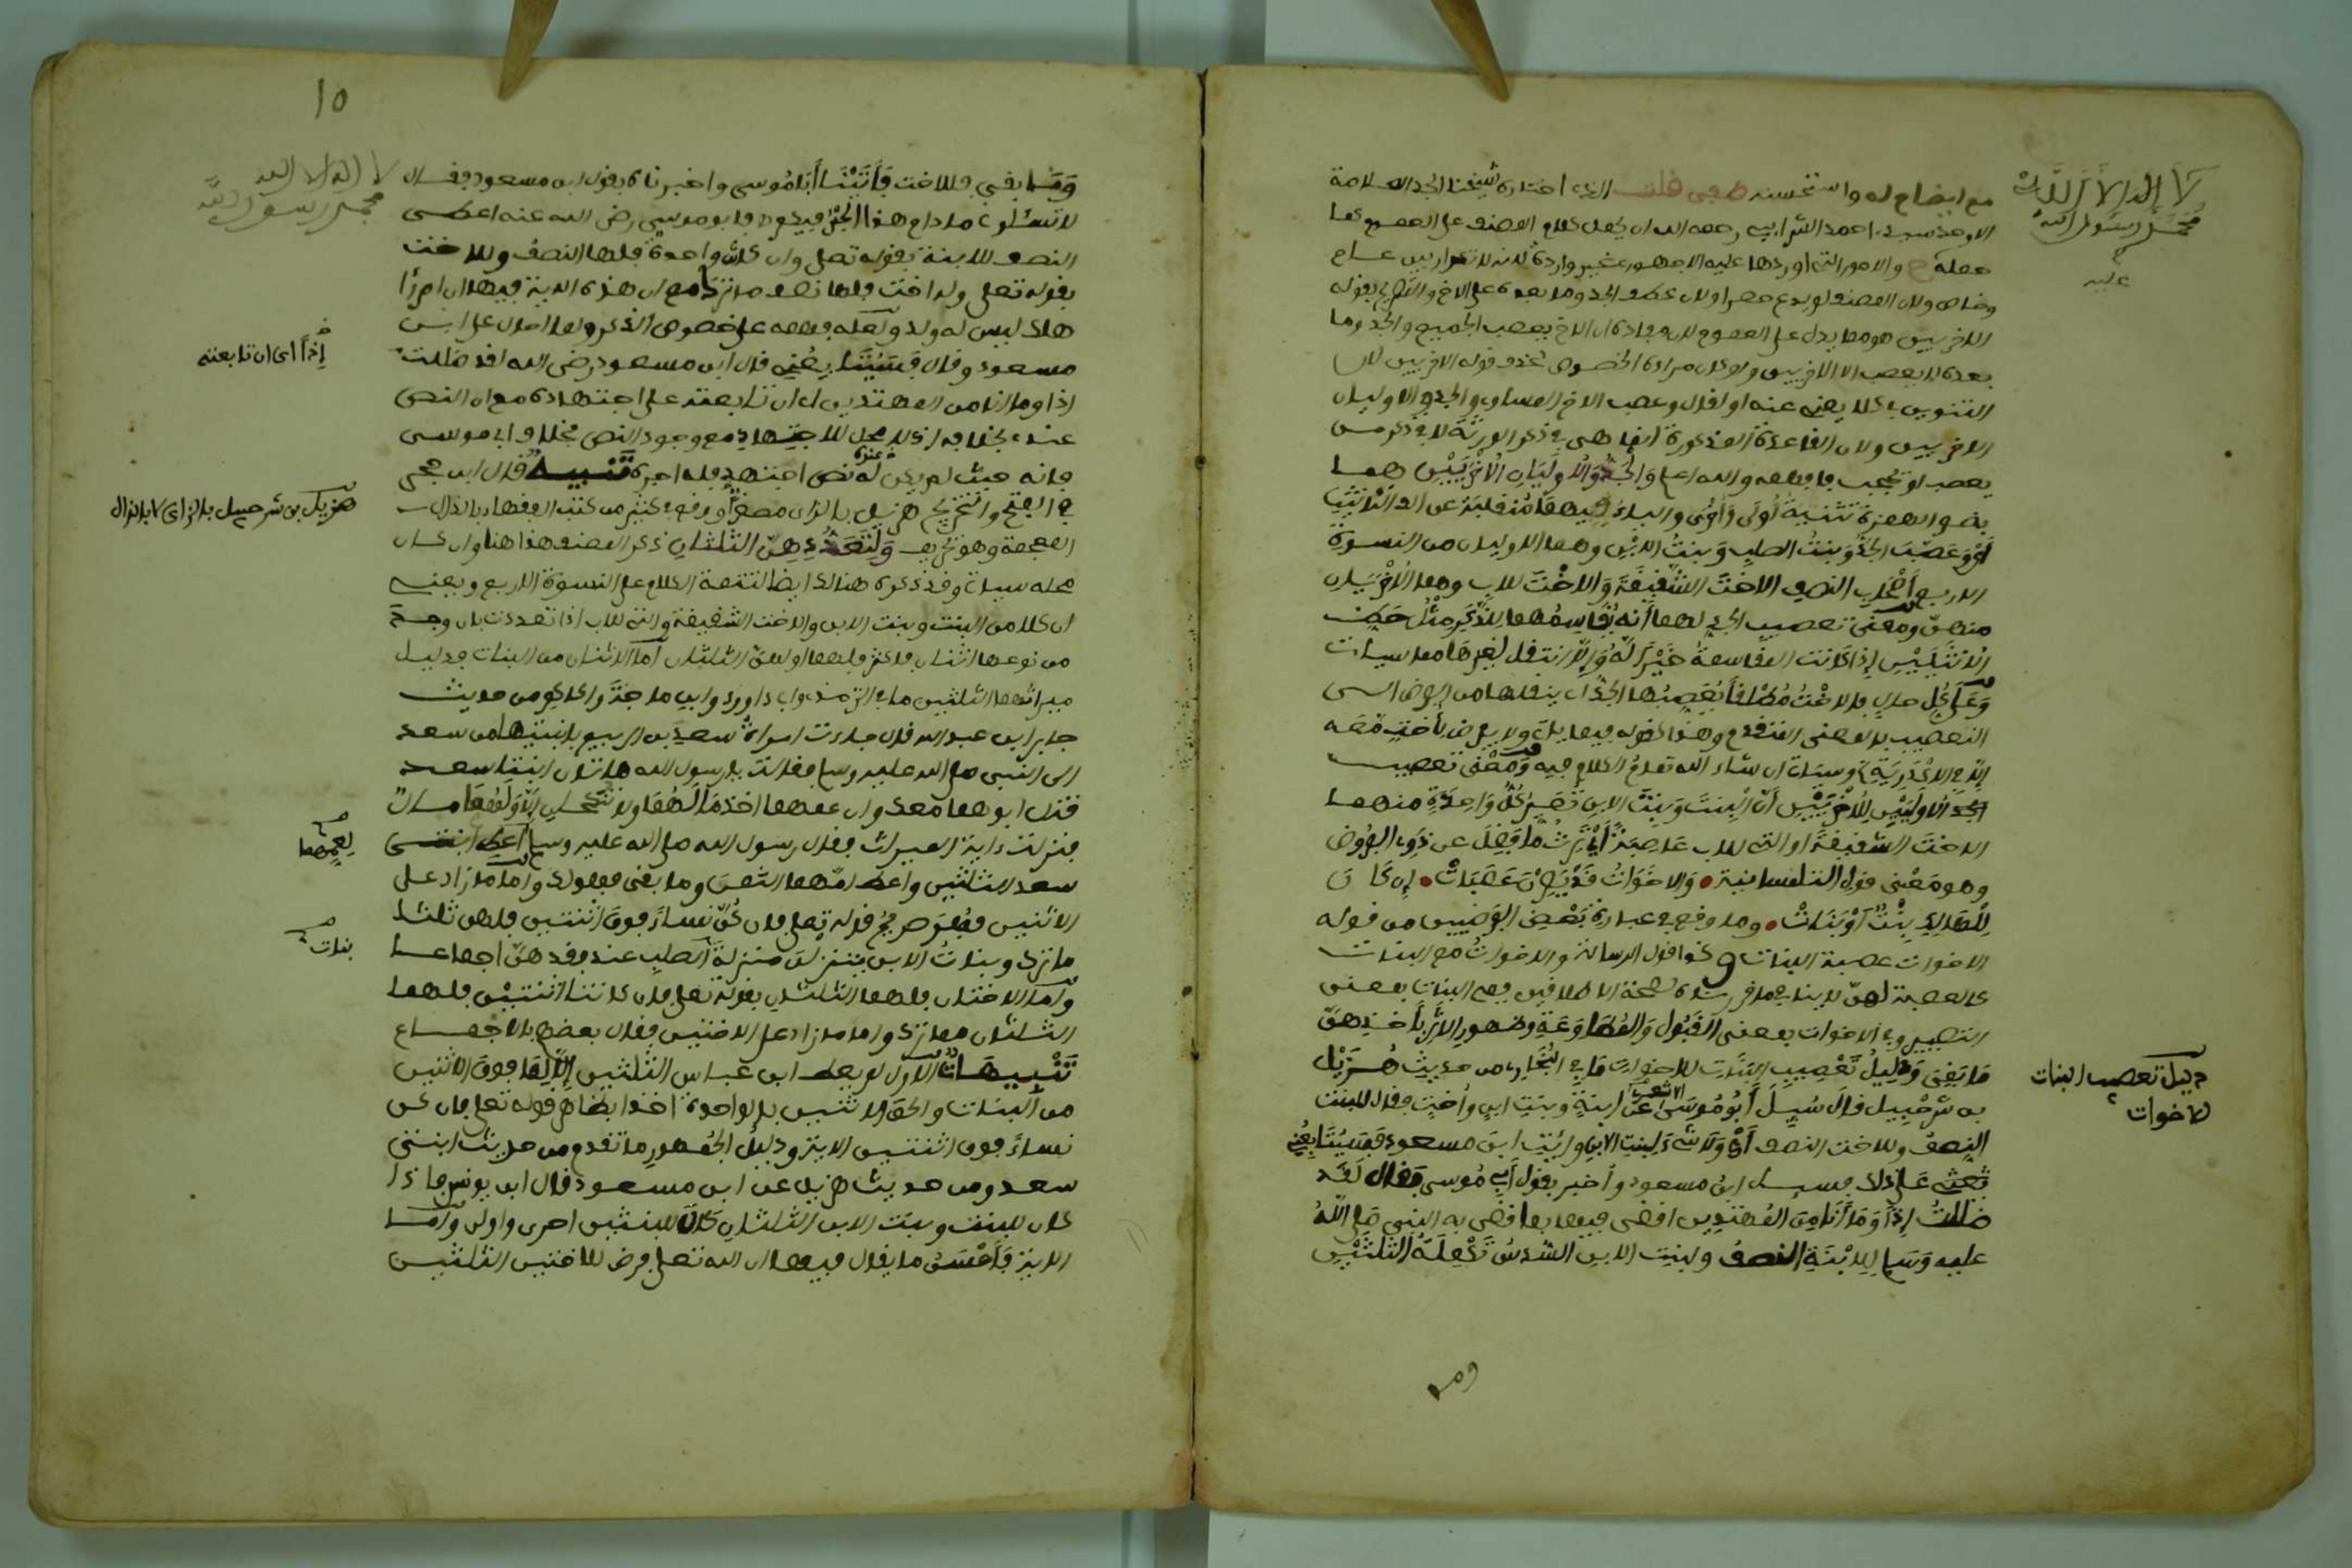 لا إله إلا الله
محمد رسول الله
مع ايضاح له واستحسنه طفى قلت الذي اختاره شيخنا الجد العلامة
الاوحد سيدي احمد الشرابي رحمه الله ان يجعل كلام المصنف على العموم كما
وخاص ولان المصنف لم يدع حصرا ولان عطف الجد وما بعده على الاخ
الاخريين هو مما يدل على العموم لان مفاده ان الاخ يعصب الجميع والجد وما
بعده لا يعصب الا الاخريين ولو كان مراده الخصوص لحذف قوله الاخريين لان
يعصب او يحجب فافهمه والله اعلم والجد والاوليان الاخريين هما
بضم الهمزة تثنية اولى واخرى والياء فيهما منقلبة عن الف التانيث
اي وعصب الجد وبنت الصلب وبنت الابن وهما الاوليان من النسوة
الاربع اصحاب النصف الاخت الشقيقة والاخت للاب وهما الاخريان
منهن ومعنى تعصيب الجد لهما انه يقاسمهما للذكر مثل حظ
الانثيين اذا كانت المقاسمة خيرا له والا انتقل لغيرها مما سياتي
وعلى كل حال فالاخت مطلقا يعصبها الجد اي ينقلها من الفرض الى
التعصيب بالمعنى المتقدم وهذا كقوله فيما ياتي ولا يفرض لاخت معه
الا في الاكدرية وسياتي ان شاء الله تمام الكلام فيه ومعنى تعصيب
الاوليين للاخريين ان البنت وبنت الابن تصير كل واحدة منهما
الاخت الشقيقة او التي للاب عاصبة اي ترث ما فضل عن ذوي الفروض
وهو معنى قول التلمسانية والاخوات قد يصرن عصبات ان كان
للهالك بنت او بنات وما وقع في عبارة بعض الفرضيين من قوله
الاخوات عصبة البنات وكذا قول الرسالة والاخوات مع البنات
كالعصبة لهن لا ينافي ما قررناه لصحة الاطلاقين فهي البنات بمعنى
التصيير وفي الاخوات بمعنى القبول والمطاوعة وظهور الاثر باخذهن
ما بقي ودليل تعصيب البنات للاخوات ما في البخاري من حديث هزيل
بن شرحبيل قال سيل ابو موسى الاشعري عن ابنة وبنت ابن واخت فقال للبنت
النصف وللاخت النصف اي ولا شيء لبنت الابن وايت ابن مسعود فسيتابعني
على ذلك فسيل ابن مسعود واخبر بقول ابي موسى فقال لقد
ضللت اذا وما انا من المهتدين اقضي فيها بما قضى به النبي صلى الله
عليه وسلم للابنة النصف ولبنت الابن السدس تكملة الثلثين
دليل تعصيب البنات
للاخوات
وما
١٥
لا اله الا الله
محمد رسول الله
وما بقي فللاخت فاتينا ابا موسى واخبرناه بقول ابن مسعود فقال
لا تسئلوني ما دام هذا الحبر فيكم فابو موسى رضي الله عنه اعطى
النصف للابنة بقوله تعلى وان كانت واحدة فلها النصف وللاخت
بقوله تعلى وله اخت فلها نصف ما ترك مع ان هذه الاية فيها ان امرؤا
هلك ليس له ولد ولعله فهمه على خصوص الذكر ولما احال على ابن
مسعود وقال فسيتابعني قال ابن مسعود رضي الله لقد ضللت
اذا وما انا من المهتدين اي ان تابعته على اجتهاده مع ان النص
عندي بخلافه اذ لا محل للاجتهاد مع وجود النص بخلاف ابي موسى
فانه حيث لم يكن عنده نص اجتهد فله اجره تنبيه قال ابن حجر
في الفتح هزيل بالزاي مصغرا ووقع في كثير من كتب الفقهاء بالذال
المعجمة وهو تحريف ولتعددهن الثلثان ذكر المصنف هذا هنا وان كان
محله سياتي وقد ذكره هنالك ايضا لتتمة الكلام على النسوة الاربع ويعني
ان كلا من البنت وبنت الابن والاخت الشقيقة والتي للاب اذا تعددت بان وجد
من نوعها اثنان فاكثر فلهما او لهن الثلثان اما الاثنتان من البنات فدليل
ميراثهما الثلثين ما في الترمذي وابي داوود وابن ماجة والحاكم من حديث
جابر ابن عبد الله قال جاءت امراة سعد بن الربيع بابنتيها من سعد
الى النبي صلى الله عليه وسلم فقالت يا رسول الله هاتان ابنتا سعد
قتل ابوهما معك وان عمهما اخذ مالهما ولا تنكحان الا ولهما مال
فنزلت ءاية الميراث فقال رسول الله صلى الله عليه وسلم اعط ابنتي
سعد الثلثين واعط امهما الثمن وما بقي فهو لك واما ما زاد على
الاثنتين فهو صريح قوله تعلى فان كن نساء فوق اثنتين فلهن ثلثا
ما ترك وبنات الابن ينزلن منزلة الصلب عند فقدهن اجماعا
واما الاختان فلهما الثلثان بقوله تعلى فان كانتا اثنتين فلهما
الثلثان مما ترك واما ما زاد على الاختين فقال بعضهم بالاجماع
تنبيهات الاول لم يعط ابن عباس الثلثين الا لما فوق الاثنتين
من البنات والحق الاثنتين بالواحدة اخذا بظاهر قوله تعلى فان كن
نساء فوق اثنتين الاية ودليل الجمهور ما تقدم من حديث ابنتي
سعد ومن حديث هزيل عن ابن مسعود قال ابن يونس فاذا
كان للبنت وبنت الابن الثلثان كان للبنتين احرى واولى واما
الاية فاحسن ما يقال فيها ان الله تعلى فرض للاختين الثلثين
إذا اي ان تابعته
هزيل بن شرحبيل بالزاي لا بالذال
لعمهما
بنات